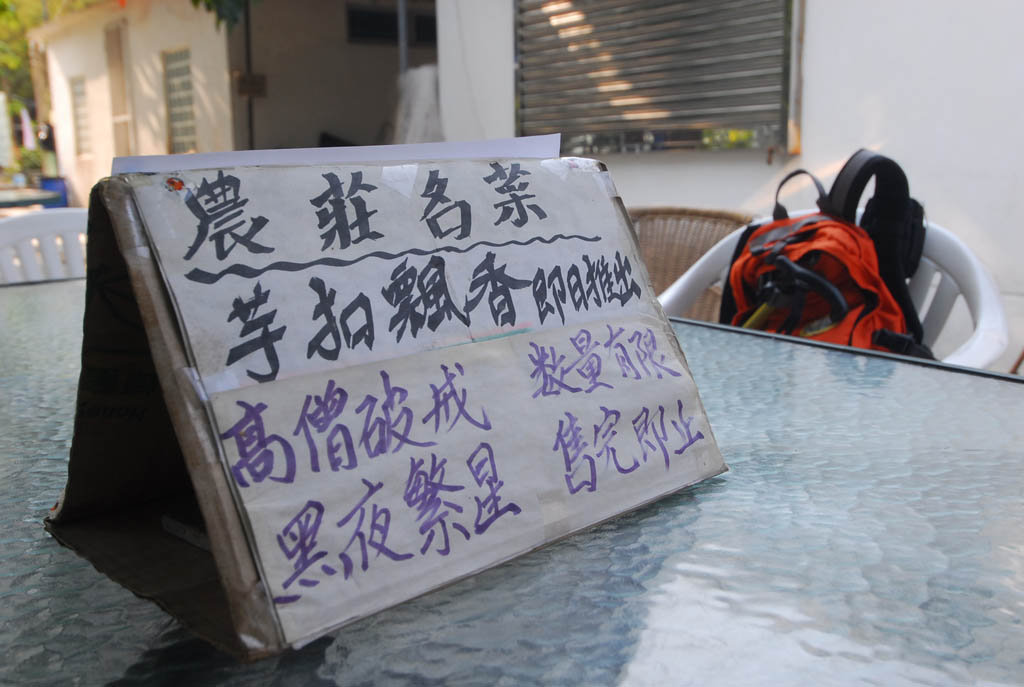 農莊名菜
芋扣飄香即日推出
高僧破戒 數量有限
黑夜繁星 售完即止